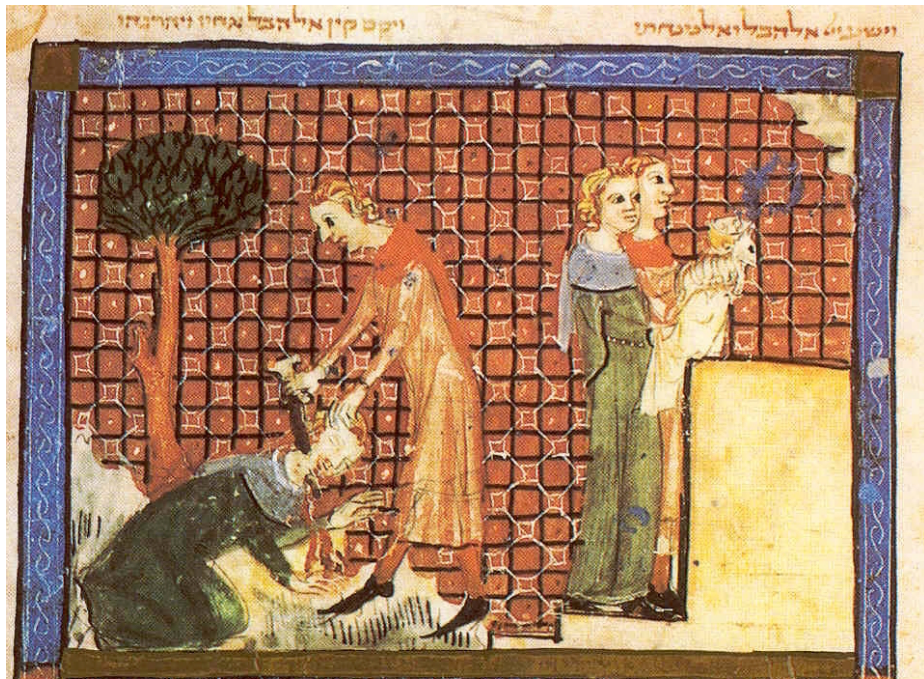 וישע יי אל הבל ואל מנחתו
ויקם קין אל הבל אחיו ויהרגהו